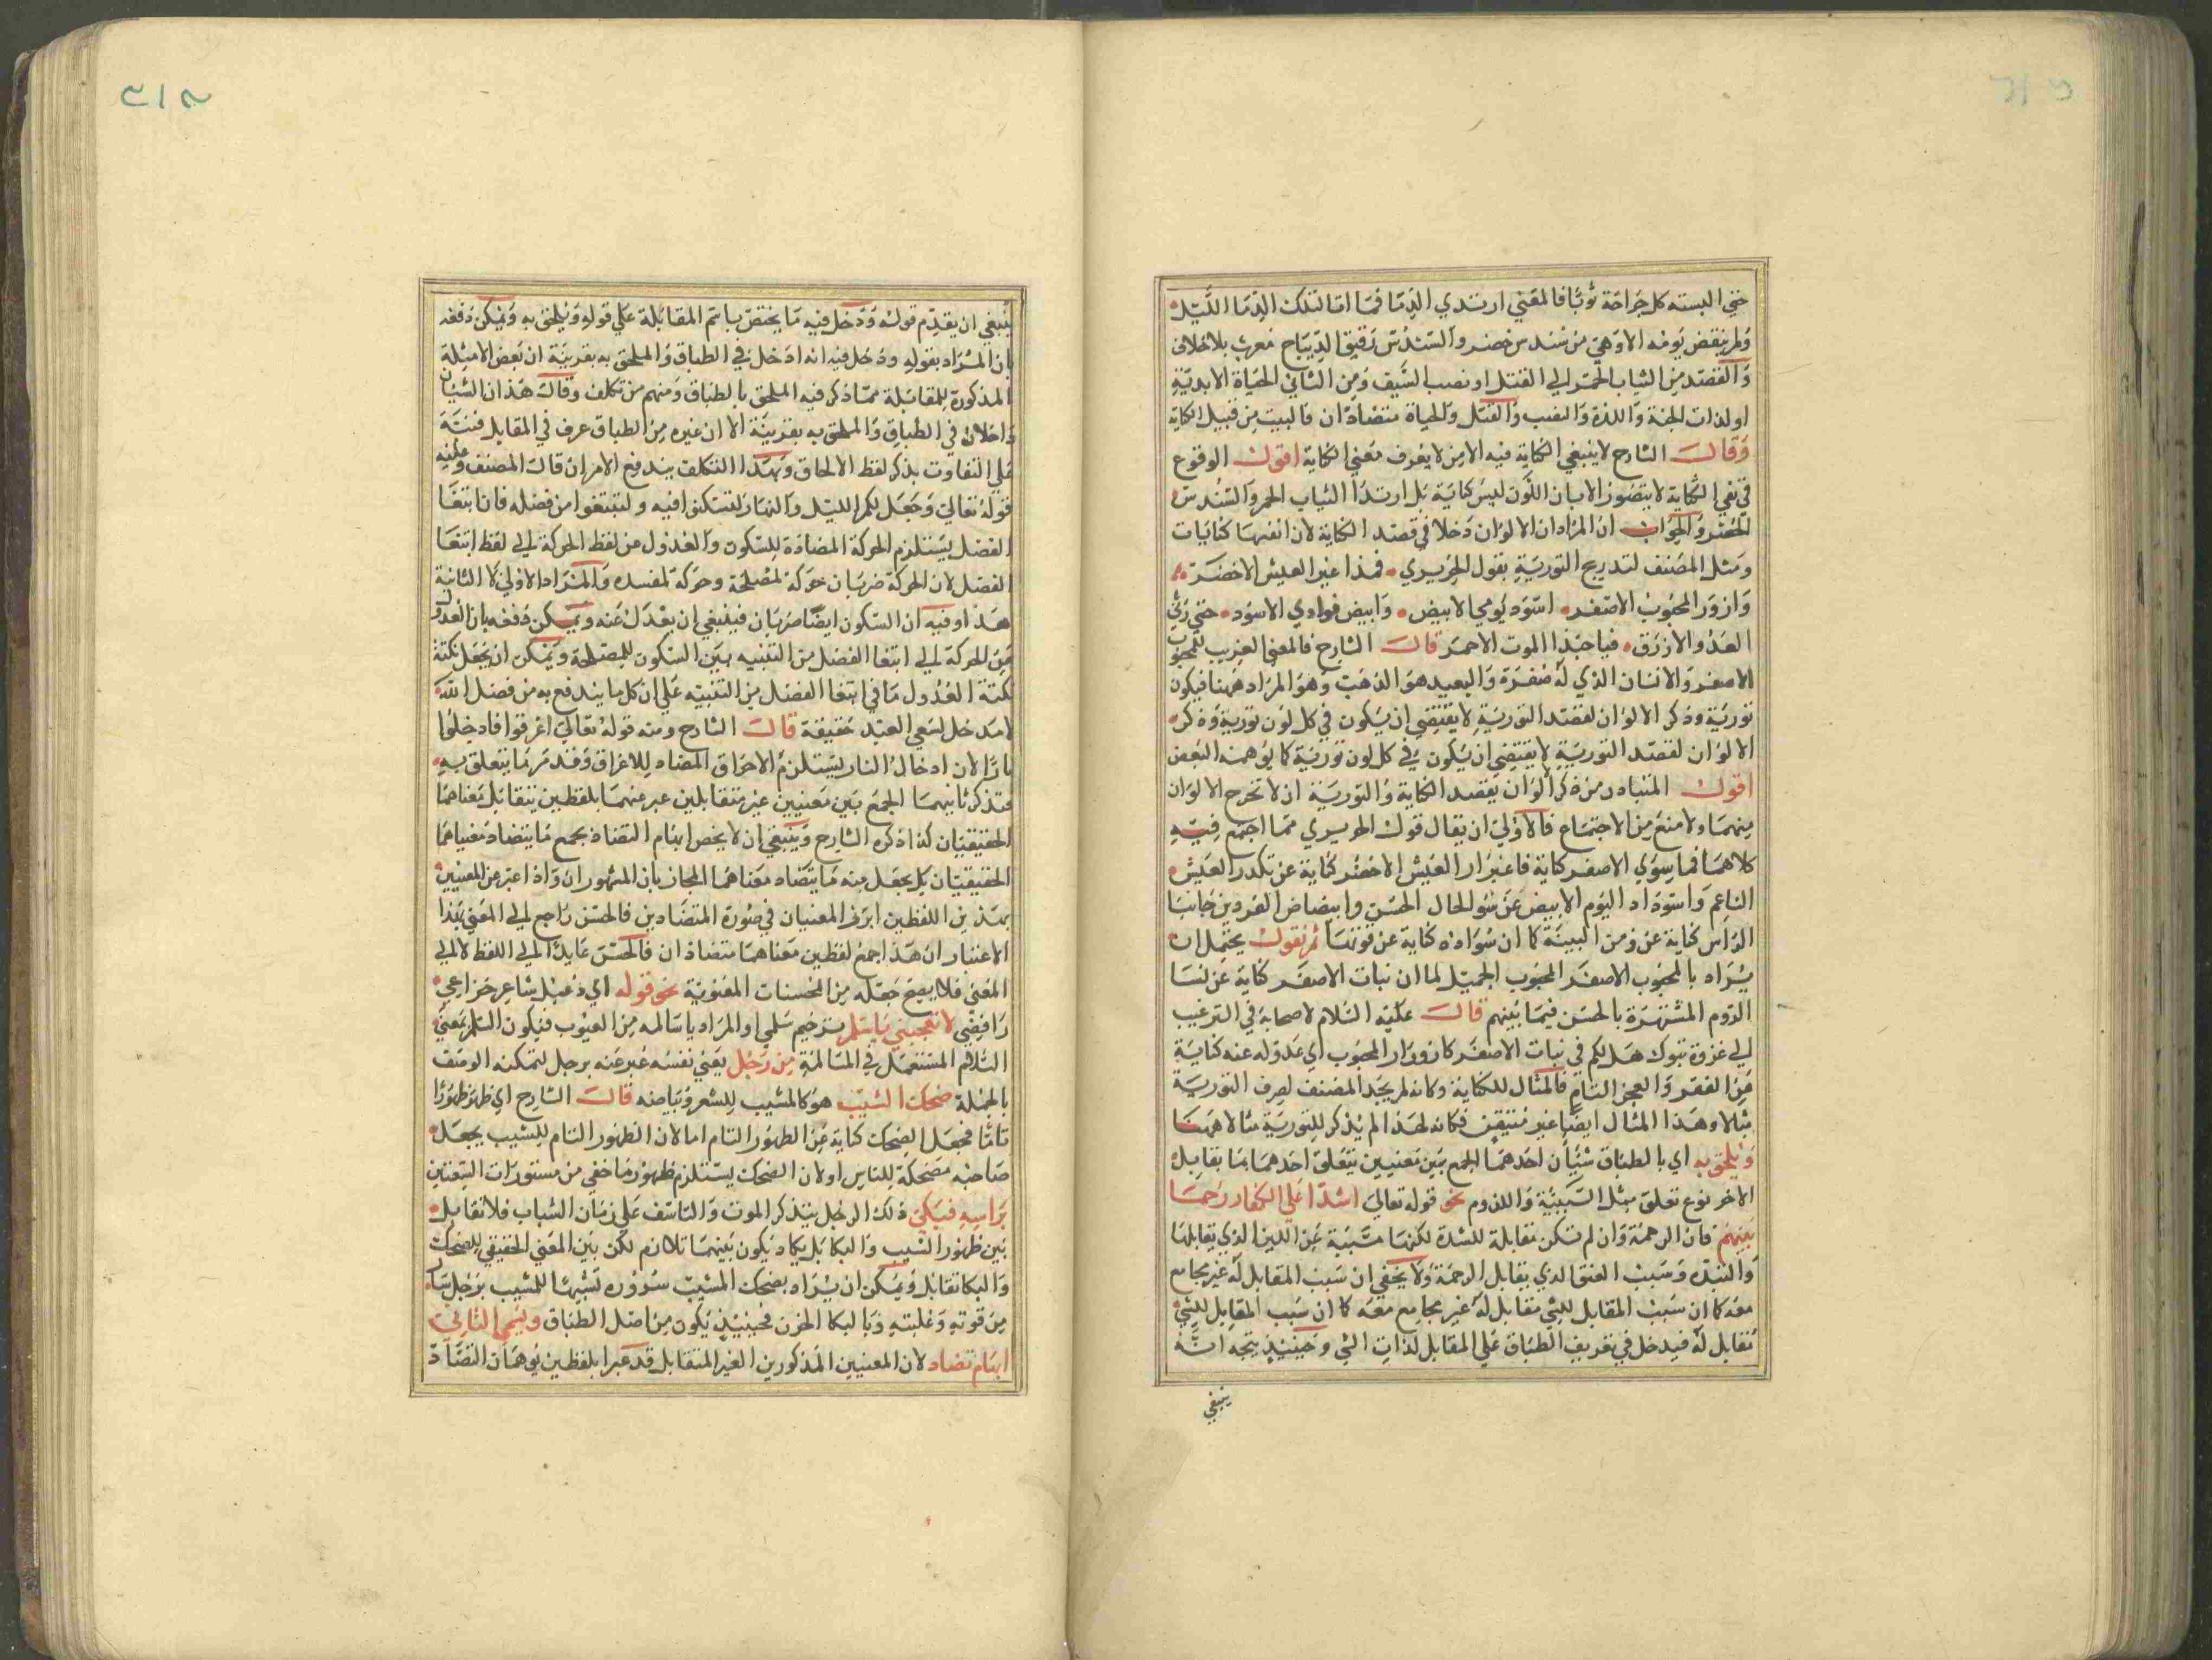 حتى البسته كل جراحة ثوبا فالمعني ارتدي الدما فما اما لتلك الدما الليل
ولم ينقض يومه الا وهي من سندس خضر والسندس رقيق الديباج معرب بلا خلاف
والقصد من الثياب الحمر الي القتل او نصب السيف ومن الثاني الحياة الابدية
او لذات الجنة واللذة والتعب والقتل والحياة متضادان فالبيت من قبيل الكناية
وقال الشارح لا ينبغي الكناية فيه الا من لا يعرف معني الكناية اقول الوقوع
في نفي الكناية لا يتصور الا بان اللون ليس كناية بل ارتدا الثياب الحمر والسندس
الخضر والجواب ان المراد ان الالوان دخلا في قصد الكناية لان انفسها كنايات
ومثل المصنف لتدبيج التورية بقول الحريري فمذا غبر العيش الاخضر
وازور المحبوب الاصفر اسود يومي الابيض وابيض فوادي الاسود حتي رثي
العدو الازرق فيا حبذا الموت الاحمر قال الشارح فالمعني القريب للمحبوب
الاصفر والانسان الذي له صفرة والبعيد هو الذهب وهو المراد ههنا فيكون
تورية وذكر الالوان لقصد التورية لا يقتضي ان يكون في كل لون تورية وذكر
الالوان لقصد التورية لا يقتضي ان يكون في كل لون تورية كما يوهمه البعض
اقول المتبادر من ذكر الوان يقصد الكناية والتورية ان لا تخرج الالوان
منهما ولا منع من الاجتماع فالاولي ان يقال قول الحريري مما اجتمع فيه
كلاهما فما سوي الاصفر كناية فاغبرار العيش الاخضر كناية عن تكدر العيش
الناعم واسوداد اليوم الابيض عن سو الحال الحسن وابيضاض الفودين جانبا
الراس كناية عن ومن البينة كما ان سواده كناية عن قوتها ثم نقول يحتمل ان
يراد بالمحبوب الاصفر المحبوب الجميل لما ان نبات الاصفر كناية عن نسا
الروم المشتهرة بالحسن فيما بينهم قال عليه السلام لاصحابه في الترغيب
الي غزوة تبوك هل لكم في نبات الاصفر كازورار المحبوب اي عدوله عنه كناية
من الفقر والعجز التام فالمثال للكناية وكانه لم يجد المصنف لصرف التورية
مثالا وهذا المثال ايضا غير متيقن فكانه لهذا لم يذكر للتورية مثالا ههنا
ويلحق به اي بالطباق شيان احدهما الجمع بين معنيين يتعلق احدهما بما يقابل
الاخر نوع تعلق مثل السببية واللزوم نحو قوله تعالي اشدا علي الكفار رحما
بينهم فان الرحمة وان لم تكن مقابلة للشدة لكنها مسببة عن اللين الذي يقابلها
والشدة وسبب العنق الذي يقابل الرحمة ولا يخفي ان سبب المقابل له غير مجامع
معه كما ان سبب المقابل للشي مقابل له غير مجامع معه كما ان سبب المقابل للشي
تقابل له فيدخل في تعريف الطباق علي المقابل لذات الشي وحينيذ يتجه انه
ينبغي
٣١٣
ينبغي ان يقدم قوله ودخل فيه ما يختص باسم المقابلة علي قوله ويلحق به ويمكن دفعه
بان المراد بقوله ودخل فيه انه ادخل في الطباق والملحق به بقرينة ان بعض الامثلة
المذكورة للمقابلة مما ذكر فيه الملحق بالطباق ومنهم من تكلف وقال هذان الشيان
داخلان في الطباق والملحق به بقرينة الا ان غيره من الطباق عرف في المقابل فنبه
علي التفاوت بذكر لفظ الالحاق وبهذا التكلف يندفع الامران قال المصنف وعليه
قوله تعالي وجعل لكم الليل والنهار لتسكنوا فيه ولتبتغوا من فضله فان ابتغا
الفضل يستلزم الحركة المضادة للسكون والعدول عن لفظ الحركة الي لفظ ابتغا
الفضل لان الحركة ضربان حركة لمصلحة وحركة لمفسده والمراد الاولي لا الثانية
هذا وفيه ان السكون ايضا ضربان فينبغي ان يعدل عنه ويمكن دفعه بان العدول
من الحركة الي ابتغا الفضل من التنبيه بين السكون للمصلحة ويمكن ان يجعل نكتة
نكتة العدول ما في ابتغا الفضل من التنبيه علي ان كل ما يندفع به من فضل الله
لا مدخل لسعي العبد حقيقة قال الشارح ومنه قوله تعالي اغرقوا فادخلوا
نارا لان ادخال النار يستلزم الاحراق المضاد للاغراق وقد مر ما يتعلق به
فتذكر ثانيهما الجمع بين معنيين غير متقابلين عبر عنهما بلفظين يتقابل معناهما
الحقيقيان كذا ذكره الشارح وينبغي ان لا يخص ايهام التضاد بجمع ما يتضاد معنياهما
الحقيقيان بل يجعل منه ما يتضاد معناهما المجاز بان المشهوران واذا عبر عن المعنيين
بهذين اللفظين ابرز المعنيان في صورة المتضادين فالحسن راجع الي المعني بهذا
الاعتبار ان هذا جمع لفظين معناهما متضادان فالحسن عايد الي اللفظ لا الي
المعني فلا يصح جعله من المحسنات المعنوية نحو قوله اي دعبل شاعر خزاعي
رافضي لا تعجبني يا سلم بترخيم سلمي او المراد يا سالمه من العيوب فيكون السلم بمعني
السلام المستعمل في المسالمة من رجل يعني نفسه عبر عنه برجل لتمكنه الوصف
بالجملة ضحك المشيب هو كالمشيب للشعر وبياضه قال الشارح اي ظهر ظهورا
تاما فجعل الضحك كناية عن الظهور التام اما لان الظهور التام للشيب يجعل
صاحبه مضحكة للناس او لان الضحك يستلزم ظهور ما خفي من مستورات الشفتين
براسه فبكي ذلك الرجل بتذكر الموت والتاسف علي زمان الشباب فلا تقابل
بين ظهور الشيب والبكا بل يكاد يكون بينهما تلازم لكن بين المعني الحقيقي للضحك
والبكا تقابل ويمكن ان يراد بضحك المشيب سروره تشبيها للمشيب برجل سار
من قوته وغلبته وبالبكا الحزن فحينيذ يكون من اصل الطباق ويسمي الثاني
ايهام تضاد لان المعنيين المذكورين الغير المتقابل قد عبرا بلفظين يوهمان التضاد